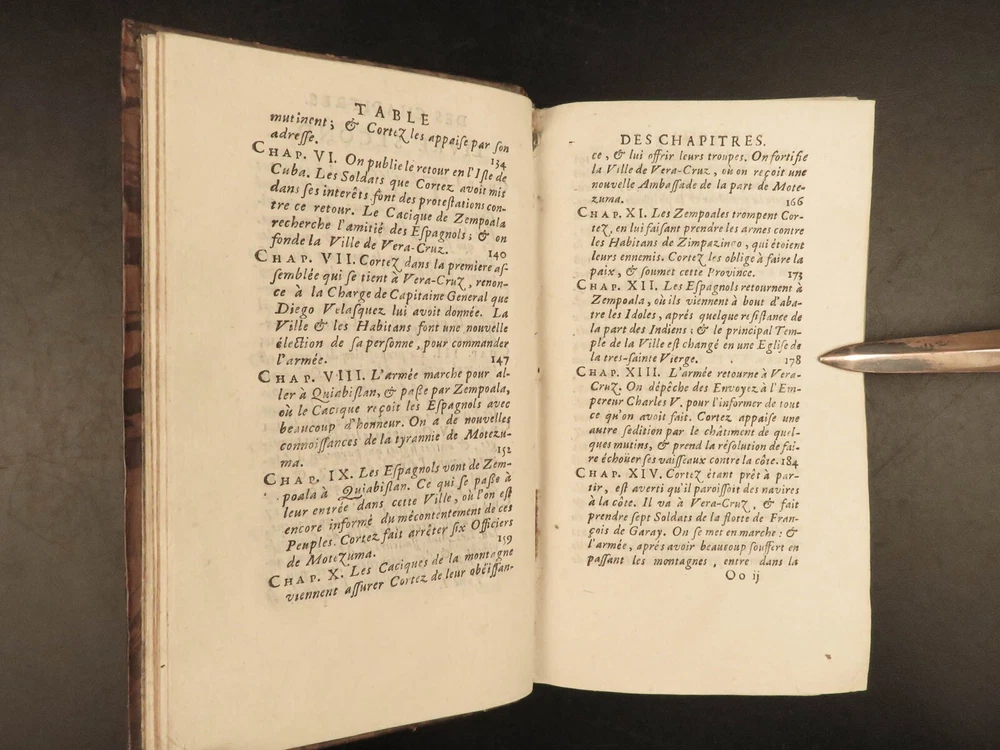 TABLE
mutinent; & Cortez les appaise par son
adresse. 134
CHAP. VI. On publie le retour en l'Isle de
Cuba. Les Soldats que Cortez avoit mis
dans ses interêts font des protestations con-
tre ce retour. Le Cacique de Zempoala
recherche l'amitié des Espagnols; & on
fonde la Ville de Vera-Cruz. 140
CHAP. VII. Cortez dans la premiere as-
semblée qui se tient à Vera-Cruz, renon-
ce à la Charge de Capitaine General que
Diego Velasquez lui avoit donnée. La
Ville & les Habitans font une nouvelle
élection de sa personne, pour commander
l'armée. 147
CHAP. VIII. L'armée marche pour al-
ler à Quiabislan, & passe par Zempoala,
où le Cacique reçoit les Espagnols avec
beaucoup d'honneur. On a de nouvelles
connoissances de la tyrannie de Motezu-
ma. 152
CHAP. IX. Les Espagnols vont de Zem-
poala à Quiabislan. Ce qui se passe à
leur entrée dans cette Ville, où l'on est
encore informé du mécontentement de ces
Peuples. Cortez fait arrêter six Officiers
de Motezuma. 159
CHAP. X. Les Caciques de la montagne
viennent assurer Cortez de leur obéïssan-
DES CHAPITRES.
ce, & lui offrir leurs troupes. On fortifie
la Ville de Vera-Cruz, où on reçoit une
nouvelle Ambassade de la part de Mote-
zuma. 166
CHAP. XI. Les Zempoales trompent Cor-
tez, en lui faisant prendre les armes contre
les Habitans de Zimpazingo, qui étoient
leurs ennemis. Cortez les oblige à faire la
paix, & soumet cette Province. 173
CHAP. XII. Les Espagnols retournent à
Zempoala, où ils viennent à bout d'aba-
tre les Idoles, après quelque resistance de
la part des Indiens; & le principal Tem-
ple de la Ville est changé en une Eglise de
la tres-sainte Vierge. 178
CHAP. XIII. L'armée retourne à Vera-
Cruz. On dépêche des Envoyez à l'Em-
pereur Charles V. pour l'informer de tout
ce qu'on avoit fait. Cortez appaise une
autre sedition par le châtiment de quel-
ques mutins, & prend la résolution de fai-
re échoüer ses vaisseaux contre la côte. 184
CHAP. XIV. Cortez étant prêt à par-
tir, est averti qu'il paroissoit des navires
à la côte. Il va à Vera-Cruz, & fait
prendre sept Soldats de la flotte de Fran-
çois de Garay. On se met en marche: &
l'armée, après avoir beaucoup souffert en
passant les montagnes, entre dans la
Oo ij